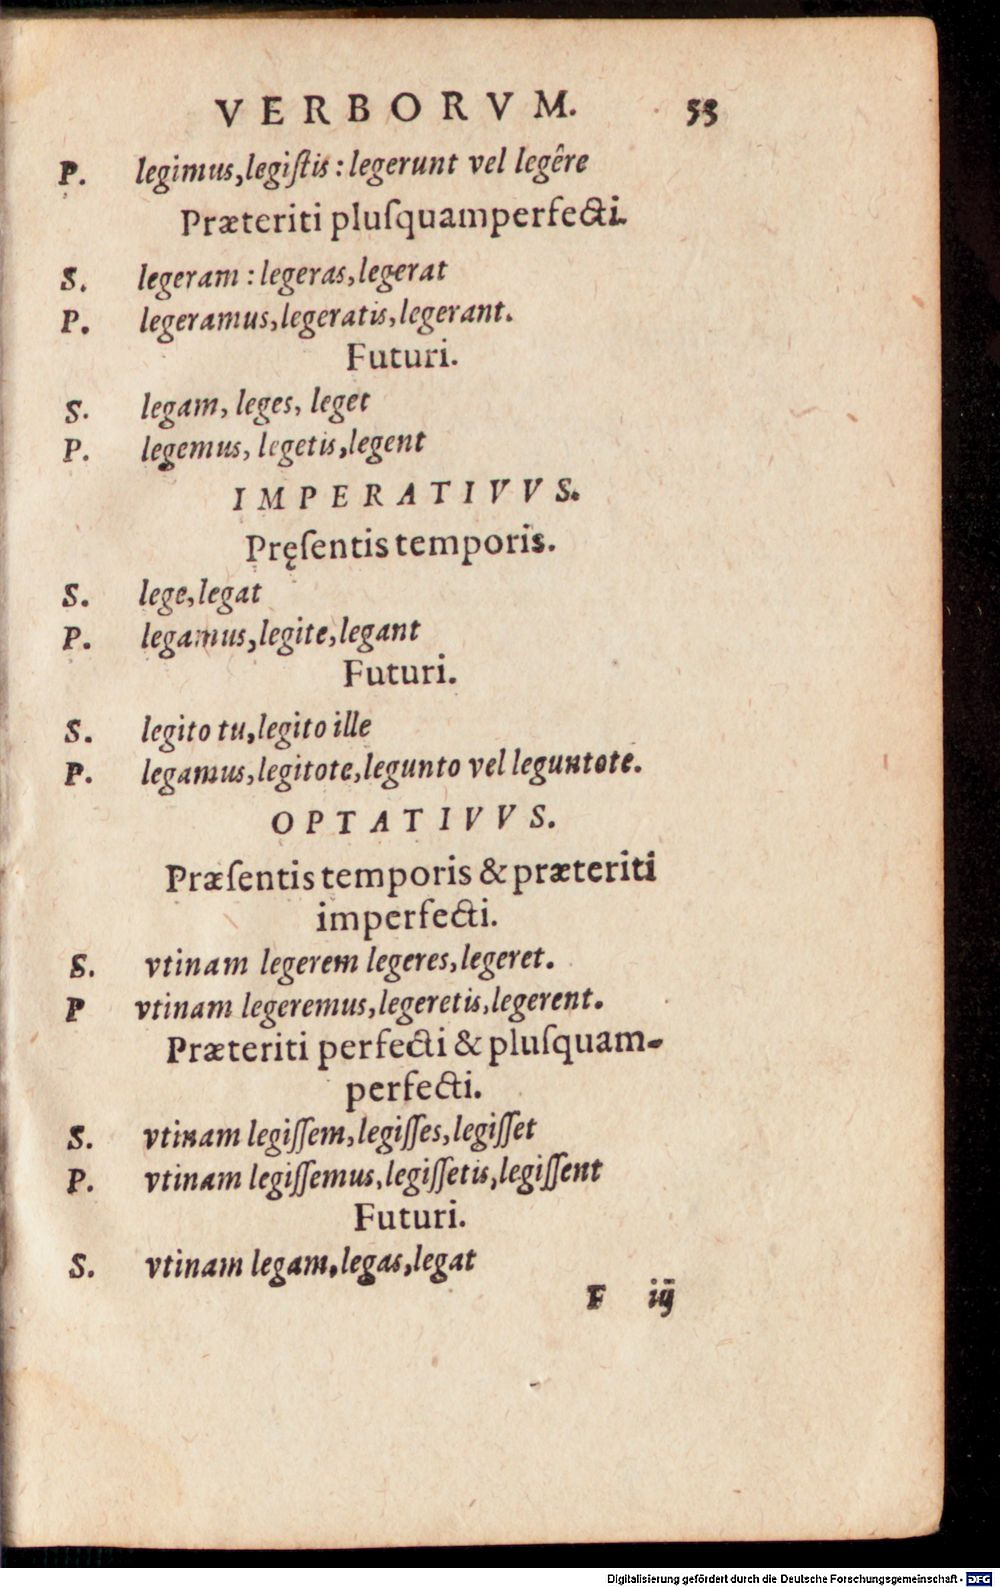 VERBORVM. 53
P. legimus,legiſtis : legerunt vel legêre
Præteriti pluſquamperfecti.
S. legeram : legeras,legerat
P. legeramus,legeratis,legerant.
Futuri.
S. legam, leges, leget
P. legemus, legetis,legent
IMPERATIVVS.
Pręſentis temporis.
S. lege,legat
P. legamus,legite,legant
Futuri.
S. legito tu,legito ille
P. legamus,legitote,legunto vel leguntote.
OPTATIVVS.
Præſentis temporis & præteriti
imperfecti.
S. vtinam legerem legeres,legeret.
P vtinam legeremus,legeretis,legerent.
Præteriti perfecti & pluſquam-
perfecti.
S. vtinam legiſſem,legiſſes,legiſſet
P. vtinam legiſſemus,legiſſetis,legiſſent
Futuri.
S. vtinam legam,legas,legat
F iij
Digitalisierung gefördert durch die Deutsche Forschungsgemeinschaft - DFG